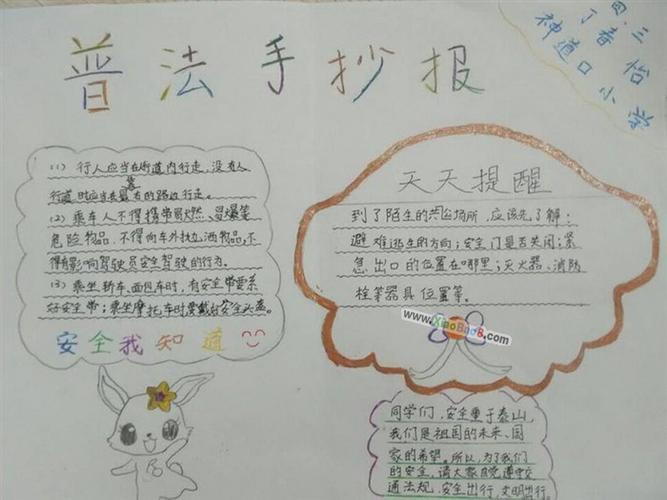 普法手抄报
四.三
丁春怡
神道口小学
(1) 行人应当在街道内行走,没有人
行道时应当去最右的路边行走。
(2) 乘车人不得携带易燃、易爆等
危险物品,不得向车外抛洒物品,不
得有影响驾驶员安全驾驶的行为。
(3) 乘坐轿车、面包车时,有安全带要系
好安全带;乘坐摩托车时要戴好安全头盔。
安全我知道
天天提醒
到了陌生的公共场所,应该先了解:
避难逃生的方向;安全门是否关闭;紧
急出口的位置在哪里;灭火器、消防
栓等器具位置等。
www.XiaoBaoB.com
同学们,安全重于泰山,
我们是祖国的未来、国
家的希望。所以,为了我们
的安全,请大家自觉遵守交
通法规,安全出行,文明出行。